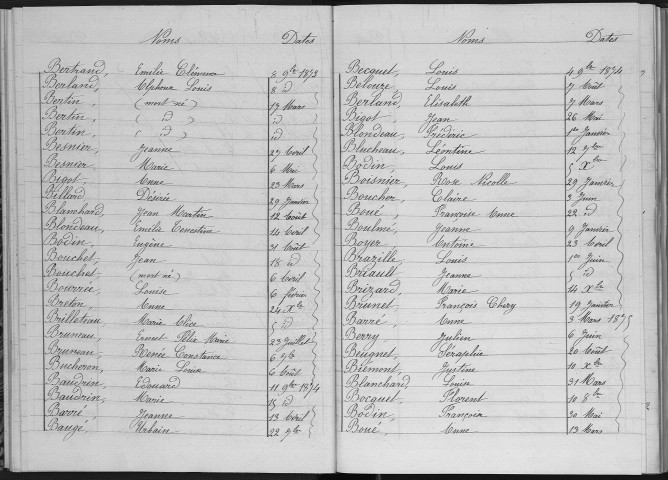 Noms Dates
Bertrand, Emilie Clémence 8 9bre 1873
Berland, Alphonse Louis 8 id
Bertin, (mort-né) 17 Mars
Bertin, ( id ) id
Bertin, ( id ) id
Besnier, Jeanne 27 Avril
Besnier, Marie 6 Mai
Bigot, Anne 23 Mars
Billard, Désirée 29 Janvier
Blanchard, Jean Martin 12 Août
Blondeau, Emilie Ernestine 14 Avril
Bodin, Eugène 31 Août
Bouchet, Jean 18 id
Bouchet, (mort né) 6 Avril
Bourrée, Louise 6 février
Breton, Anne 24 Xbre
Brilleteau, Marie Alice 5 id
Bruneau, Ernest Félix Marie 23 Juillet
Bruneau, Renée Constance 6 7bre
Bucheron, Marie Louise 6 Août
Baudrin, Edouard 11 9bre 1874
Baudrin, Marie 15 id
Barré, Jeanne 13 Avril
Baugé, Urbain 22 7bre
Noms Dates
Becquet, Louis 4 9bre 1874
Belouze, Louis 7 Août
Berland, Elisabeth 7 Mars
Bigot, Jean 26 Mai
Blondeau, Frédéric 1er Janvier
Blucheau, Léontine 12 7bre
Bodin, Louis 5 Xbre
Boisnier, Rose Nicolle 29 Janvier
Boucher, Claire 3 Juin
Boué, Françoise Anne 22 id
Boulmé, Jeanne 9 Janvier
Boyer, Antoine 23 Avril
Brazille, Louis 1er Juin
Briault, Jeanne 5 id
Brizard, Marie 14 Xbre
Brunet, François Chéry 19 Janvier
Barré, Anne 3 Mars 1875
Berry, Julien 6 Juin
Beugnet, Séraphie 20 Août
Biemont, Justine 10 Xbre
Blanchard, Louise 31 Mars
Bocquet, Florent 10 8bre
Bodin, François 30 Mai
Boué, Anne 13 Mars